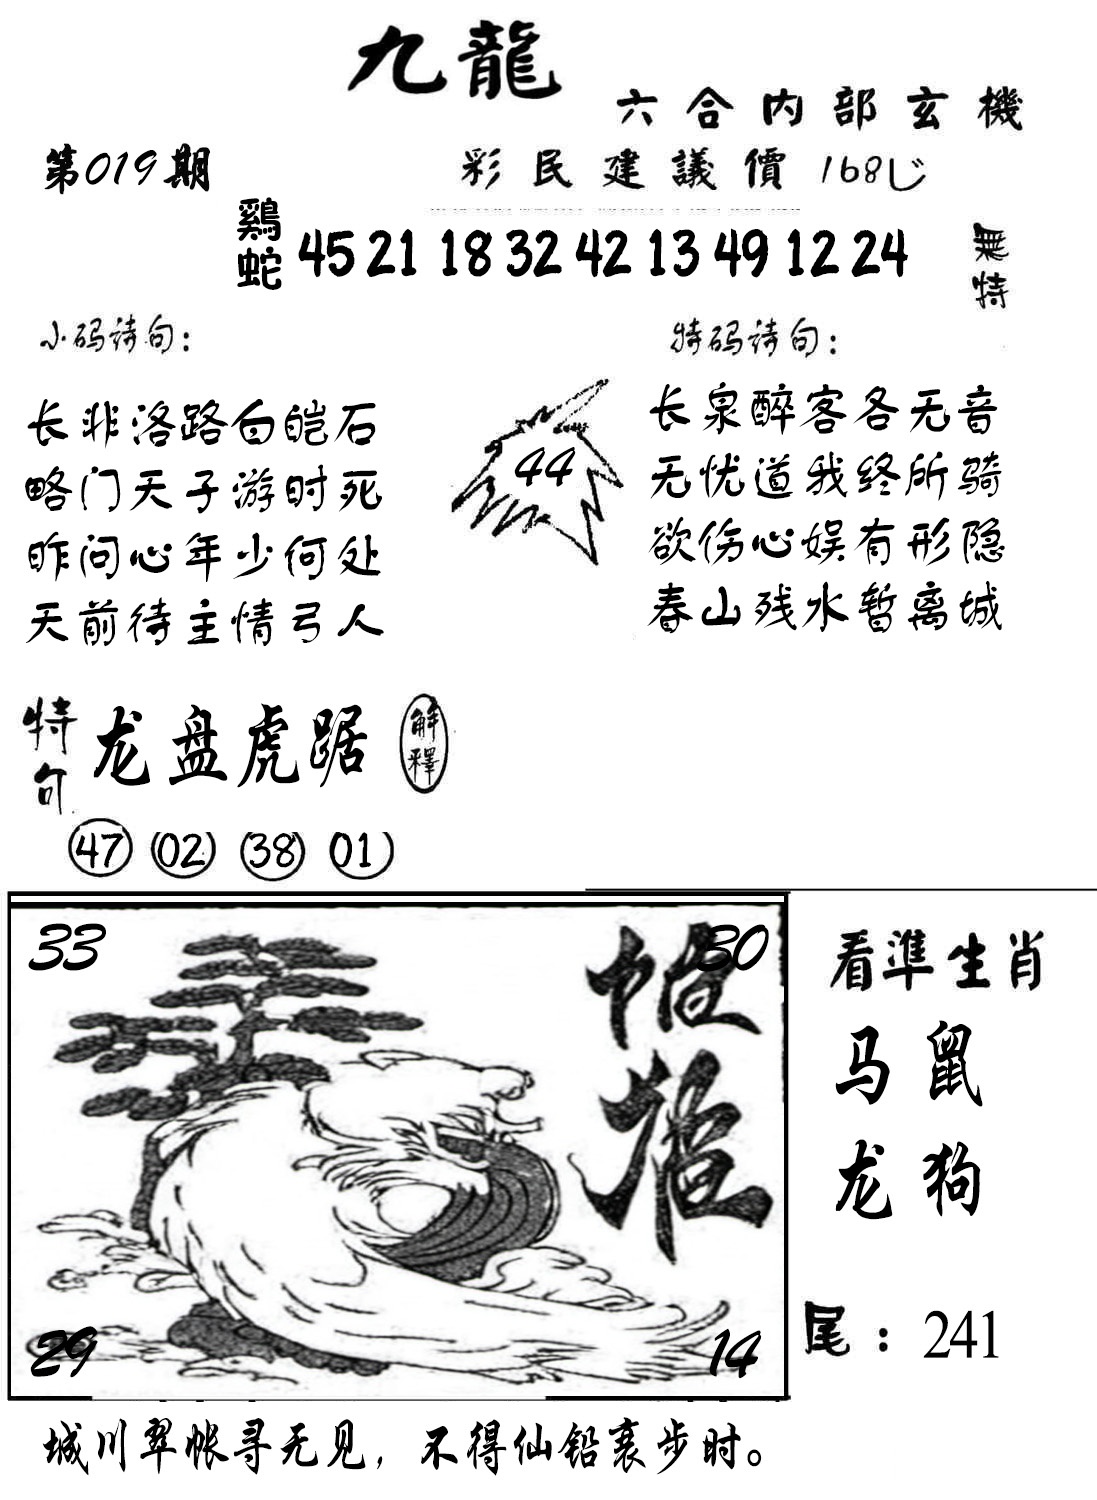 九龍
六合内部玄機
第019期
彩民建議價 168
鷄蛇 45 21 18 32 42 13 49 12 24 無特
小码诗句：
特码诗句：
长非洛路白皑石
略门天子游时死
昨问心年少何处
天前待主情弓人
44
长泉醉客各无音
无忧道我终所骑
欲伤心娱有形隐
春山残水暂离城
特句 龙盘虎踞 解釋
47 02 38 01
33 30
29 14
看準生肖
马鼠
龙狗
尾：241
城川翠帐寻无见，不得仙铅裹步时。